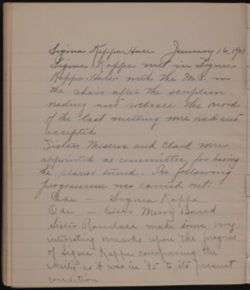 Sigma Kappa Hall January 16, 1901
Sigma Kappa met in Sigma
Kappa Hall with the M.S. in
the chair. After the scripture
reading and rollcall the records
of the last meeting were read and
accepted.
Sisters Meserve and Clark were
appointed as committee for having
the piano tuned. The following
programme was carried out:
Ode — Sigma Kappa
Ode — Sister Mercy Brann
Sister made some very
interesting remarks upon the progress
of Sigma Kappa comparing the
society as it was in '95 to its present
condition